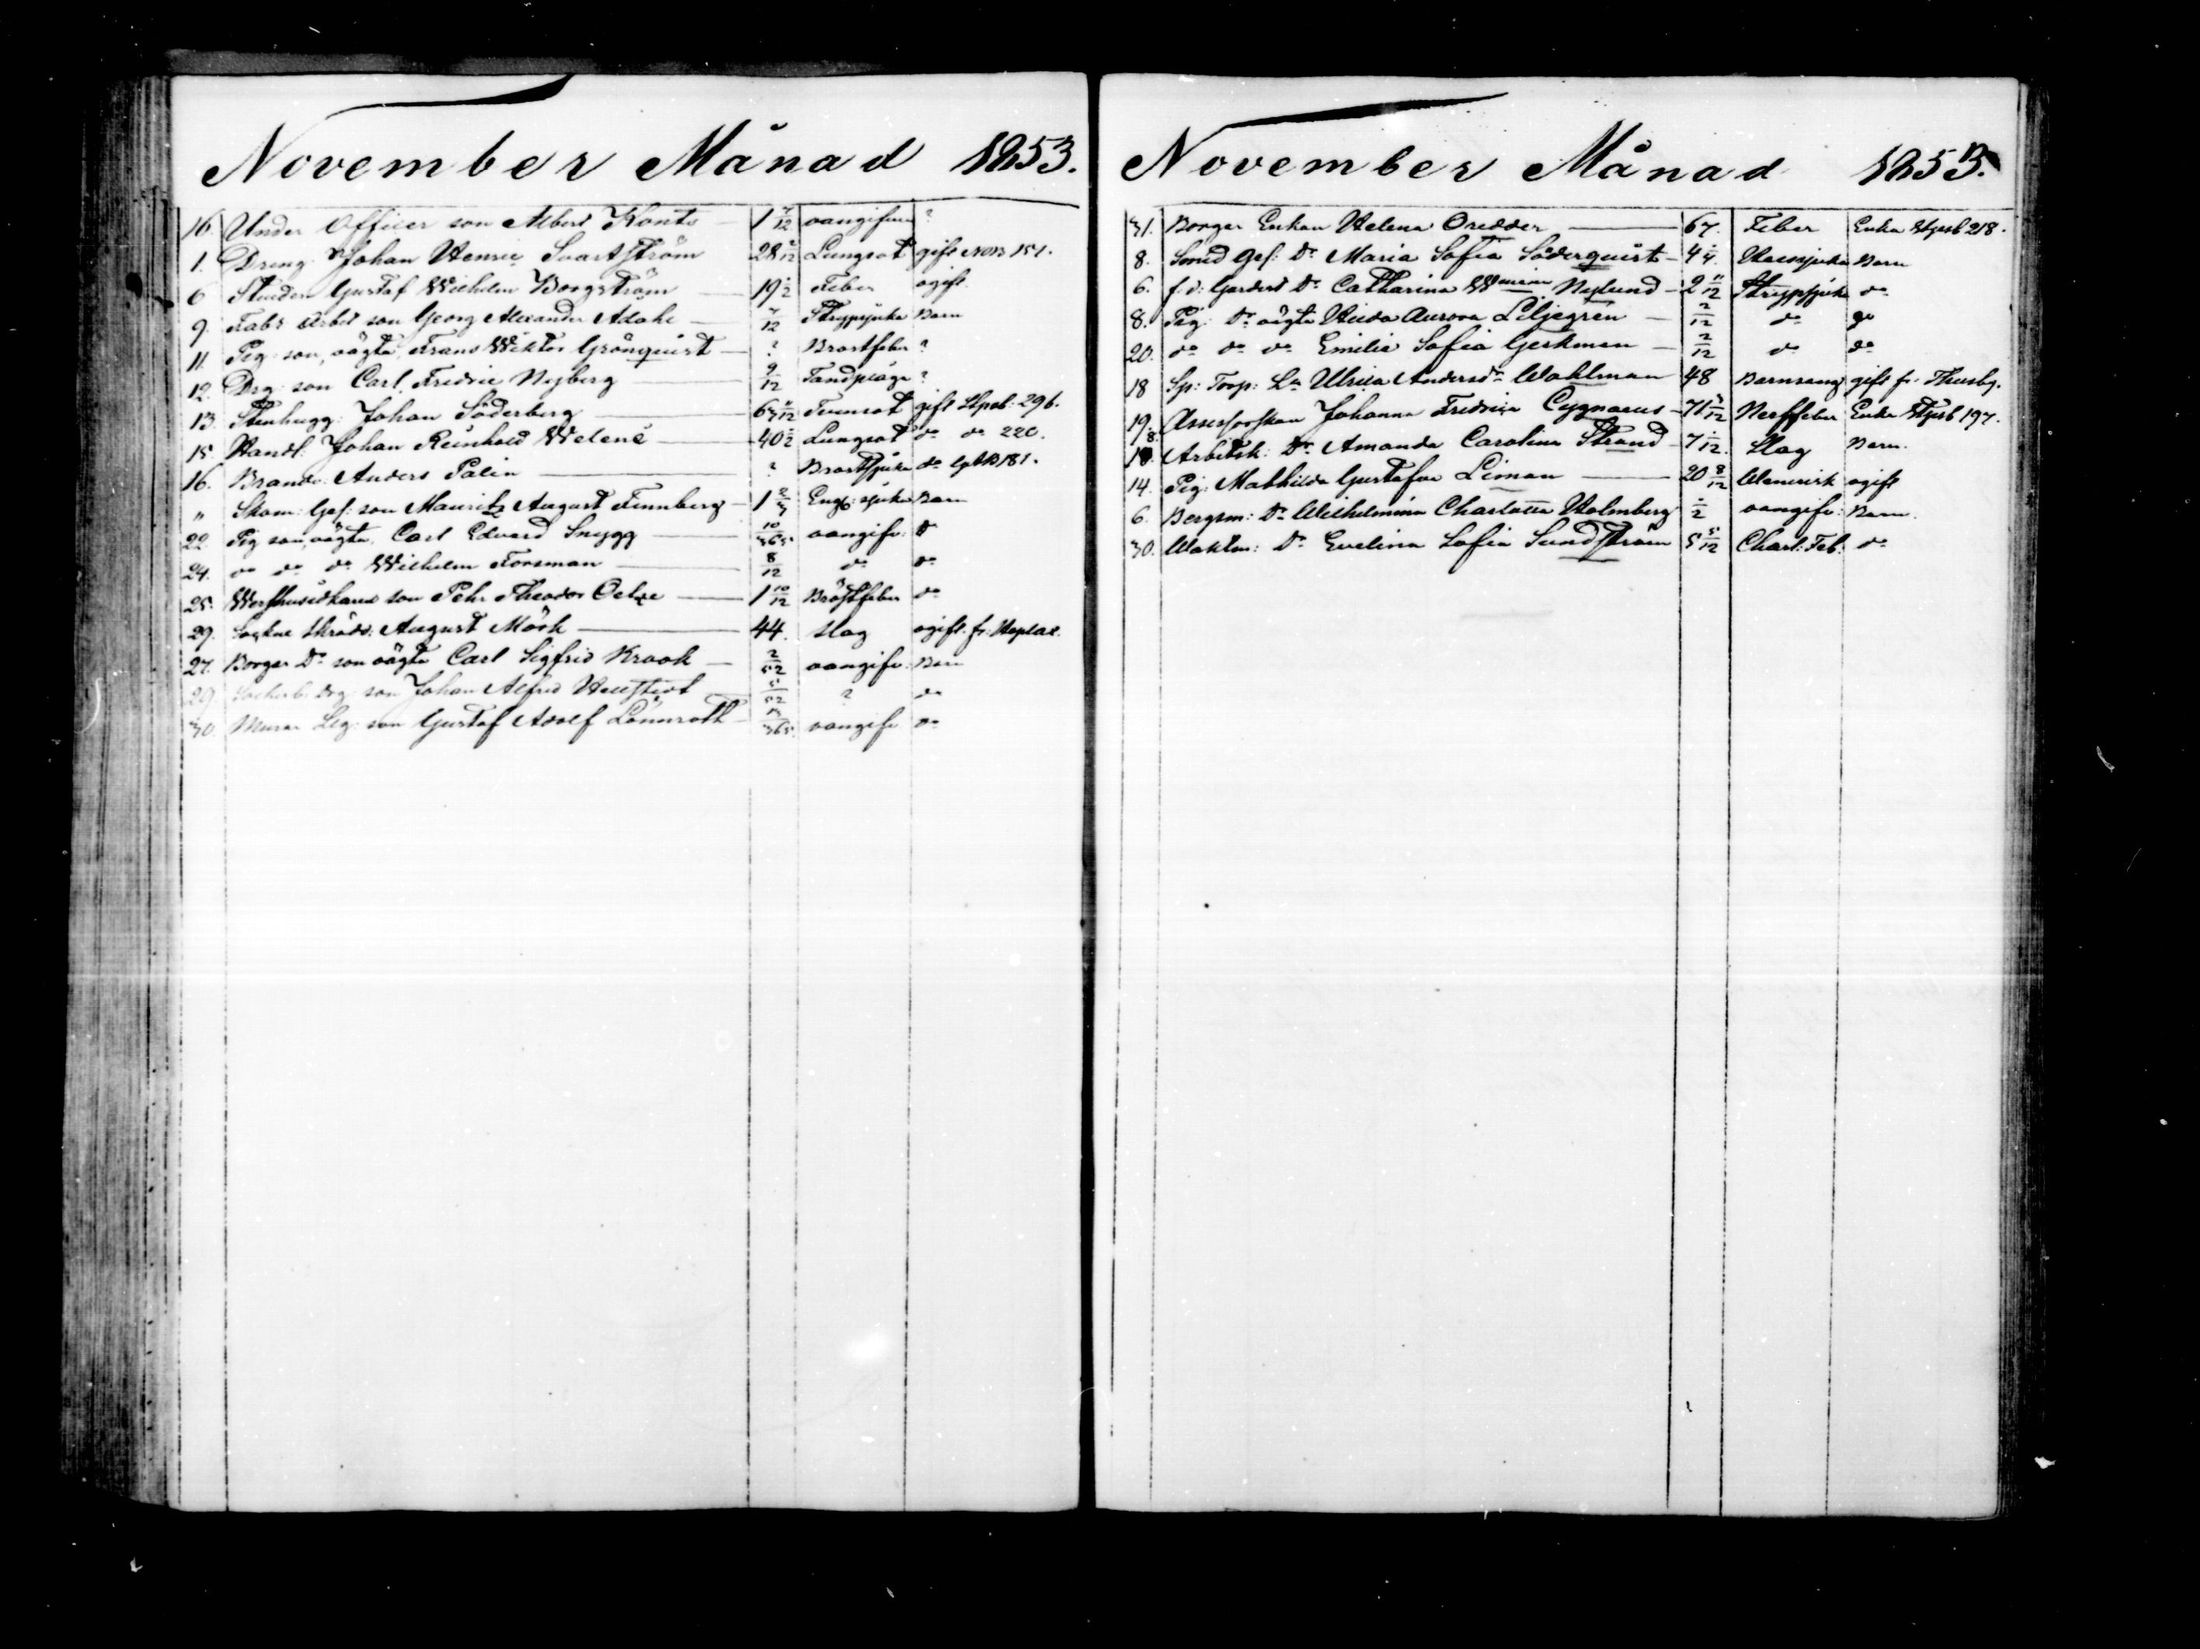 November Månad 1853.
16. Under Officer son Albert Konts — 1 7/12 oangifven ?
1. Dreng Johan Henric Svartström 28 2/12 Lungsot gift 157.
6 Student Gustaf Wilhelm Borgström — 19 1/2 Feber ogift
9. Fabr Arbet son Georg Alexander Adahl — 7/12 Strypsjuka Barn
11. Pig: son, oägta, Frans Wiktor Grönquist — ? Brostfeber ?
12. Drg: son Carl Fredric Nyberg — 9/12 Tandplåga ?
13. Stenhugg: Johan Söderberg — 63 Tvinsot gift 296.
15. Handl: Johan Reinhold Welené — 40 1/2 Lungsot do do 220.
16. Brandv: Anders Palin — ? Brostsjuka do 181.
" Skom: Ges: son Mauritz August Finnberg — 1 Eng: sjuka Barn
22. Pig son, oägta, Carl Edvard Snygg — 10/365 oangifv: do
24. do do do Wilhelm Forsman — 8/12 do do
25. son Pehr Theodor — 1 10/12 Bröstfeber do
29. Sockne Skrädd: August Mörk — 44. Slag ogift fr:
27. Borgar Dr son oägta Carl Sigfrid Krook — 2/52 oangifv: Barn
29. drg: son Johan Alfred Hellstedt — 5/52 ? do
30. Murar Lg: son Gustaf Adolf Lönnroth — 13/365. oangifv do
November Månad 1853.
31. Borgar Enkan Helena Oredder — 67. Feber Enka 218.
8. Smed Ges: Dr Maria Sofia Söderquist — 4 1/4. Halssjuka Barn
6. f. d: Gardist Dr Catharina Nylund — 2 11/12 Strypsjuka do
8. Pig: Dr oägta Hilda Aurora Liljegren — 2/12 do do
20. do do do Emilia Sofia Gerkman — 2/12 do do
18 Sp: Torp: Ulrica Andersdr Wahlman 48 Barnsäng gift fr: Thusby.
19. Assessorskan Johanna Fredrica Cygnaeus — 71 7/12 Nerffeber Enka 197.
18. Arbetsk: Dr Amanda Carolina Strand — 7 1/12. Slag Barn.
14. Pig: Mathilda Gustafva Liman — 20 8/12 Wenerisk ogift
6. Bergsm: Dr Wilhelmina Charlotta Holmberg 1/2 oangifv: Barn.
30. Waktm: Dr Evelina Sofia Sundström 5 5/12 Charl: Feb. do